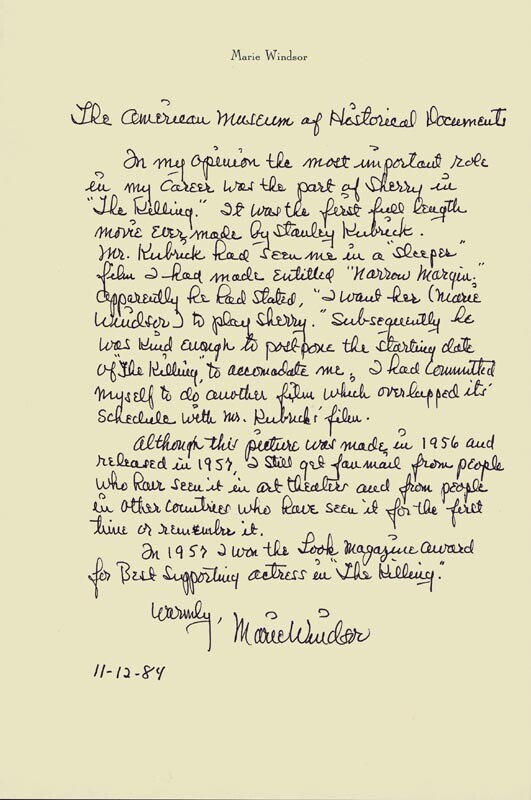 Marie Windsor
The American Museum of Historical Documents
In my opinion the most important role
in my career was the part of Sherry in
"The Killing." It was the first full length
movie ever made by Stanley Kubrick.
Mr. Kubrick had seen me in a "sleeper"
film I had made entitled "Narrow Margin."
Apparently he had stated, "I want her (Marie
Windsor) to play Sherry." Subsequently he
was kind enough to postpone the starting date
of "The Killing", to accomadate me, I had committed
myself to do another film which overlapped its'
schedule with Mr. Kubricks' film.
Although this picture was made, in 1956 and
released in 1957, I still get fan mail from people
who have seen it in art theaters and from people
in other countries who have seen it for the first
time or remember it.
In 1957 I won the Look Magazine award
for Best Supporting actress in "The Killing."
Warmly,
Marie Windsor
11-12-84